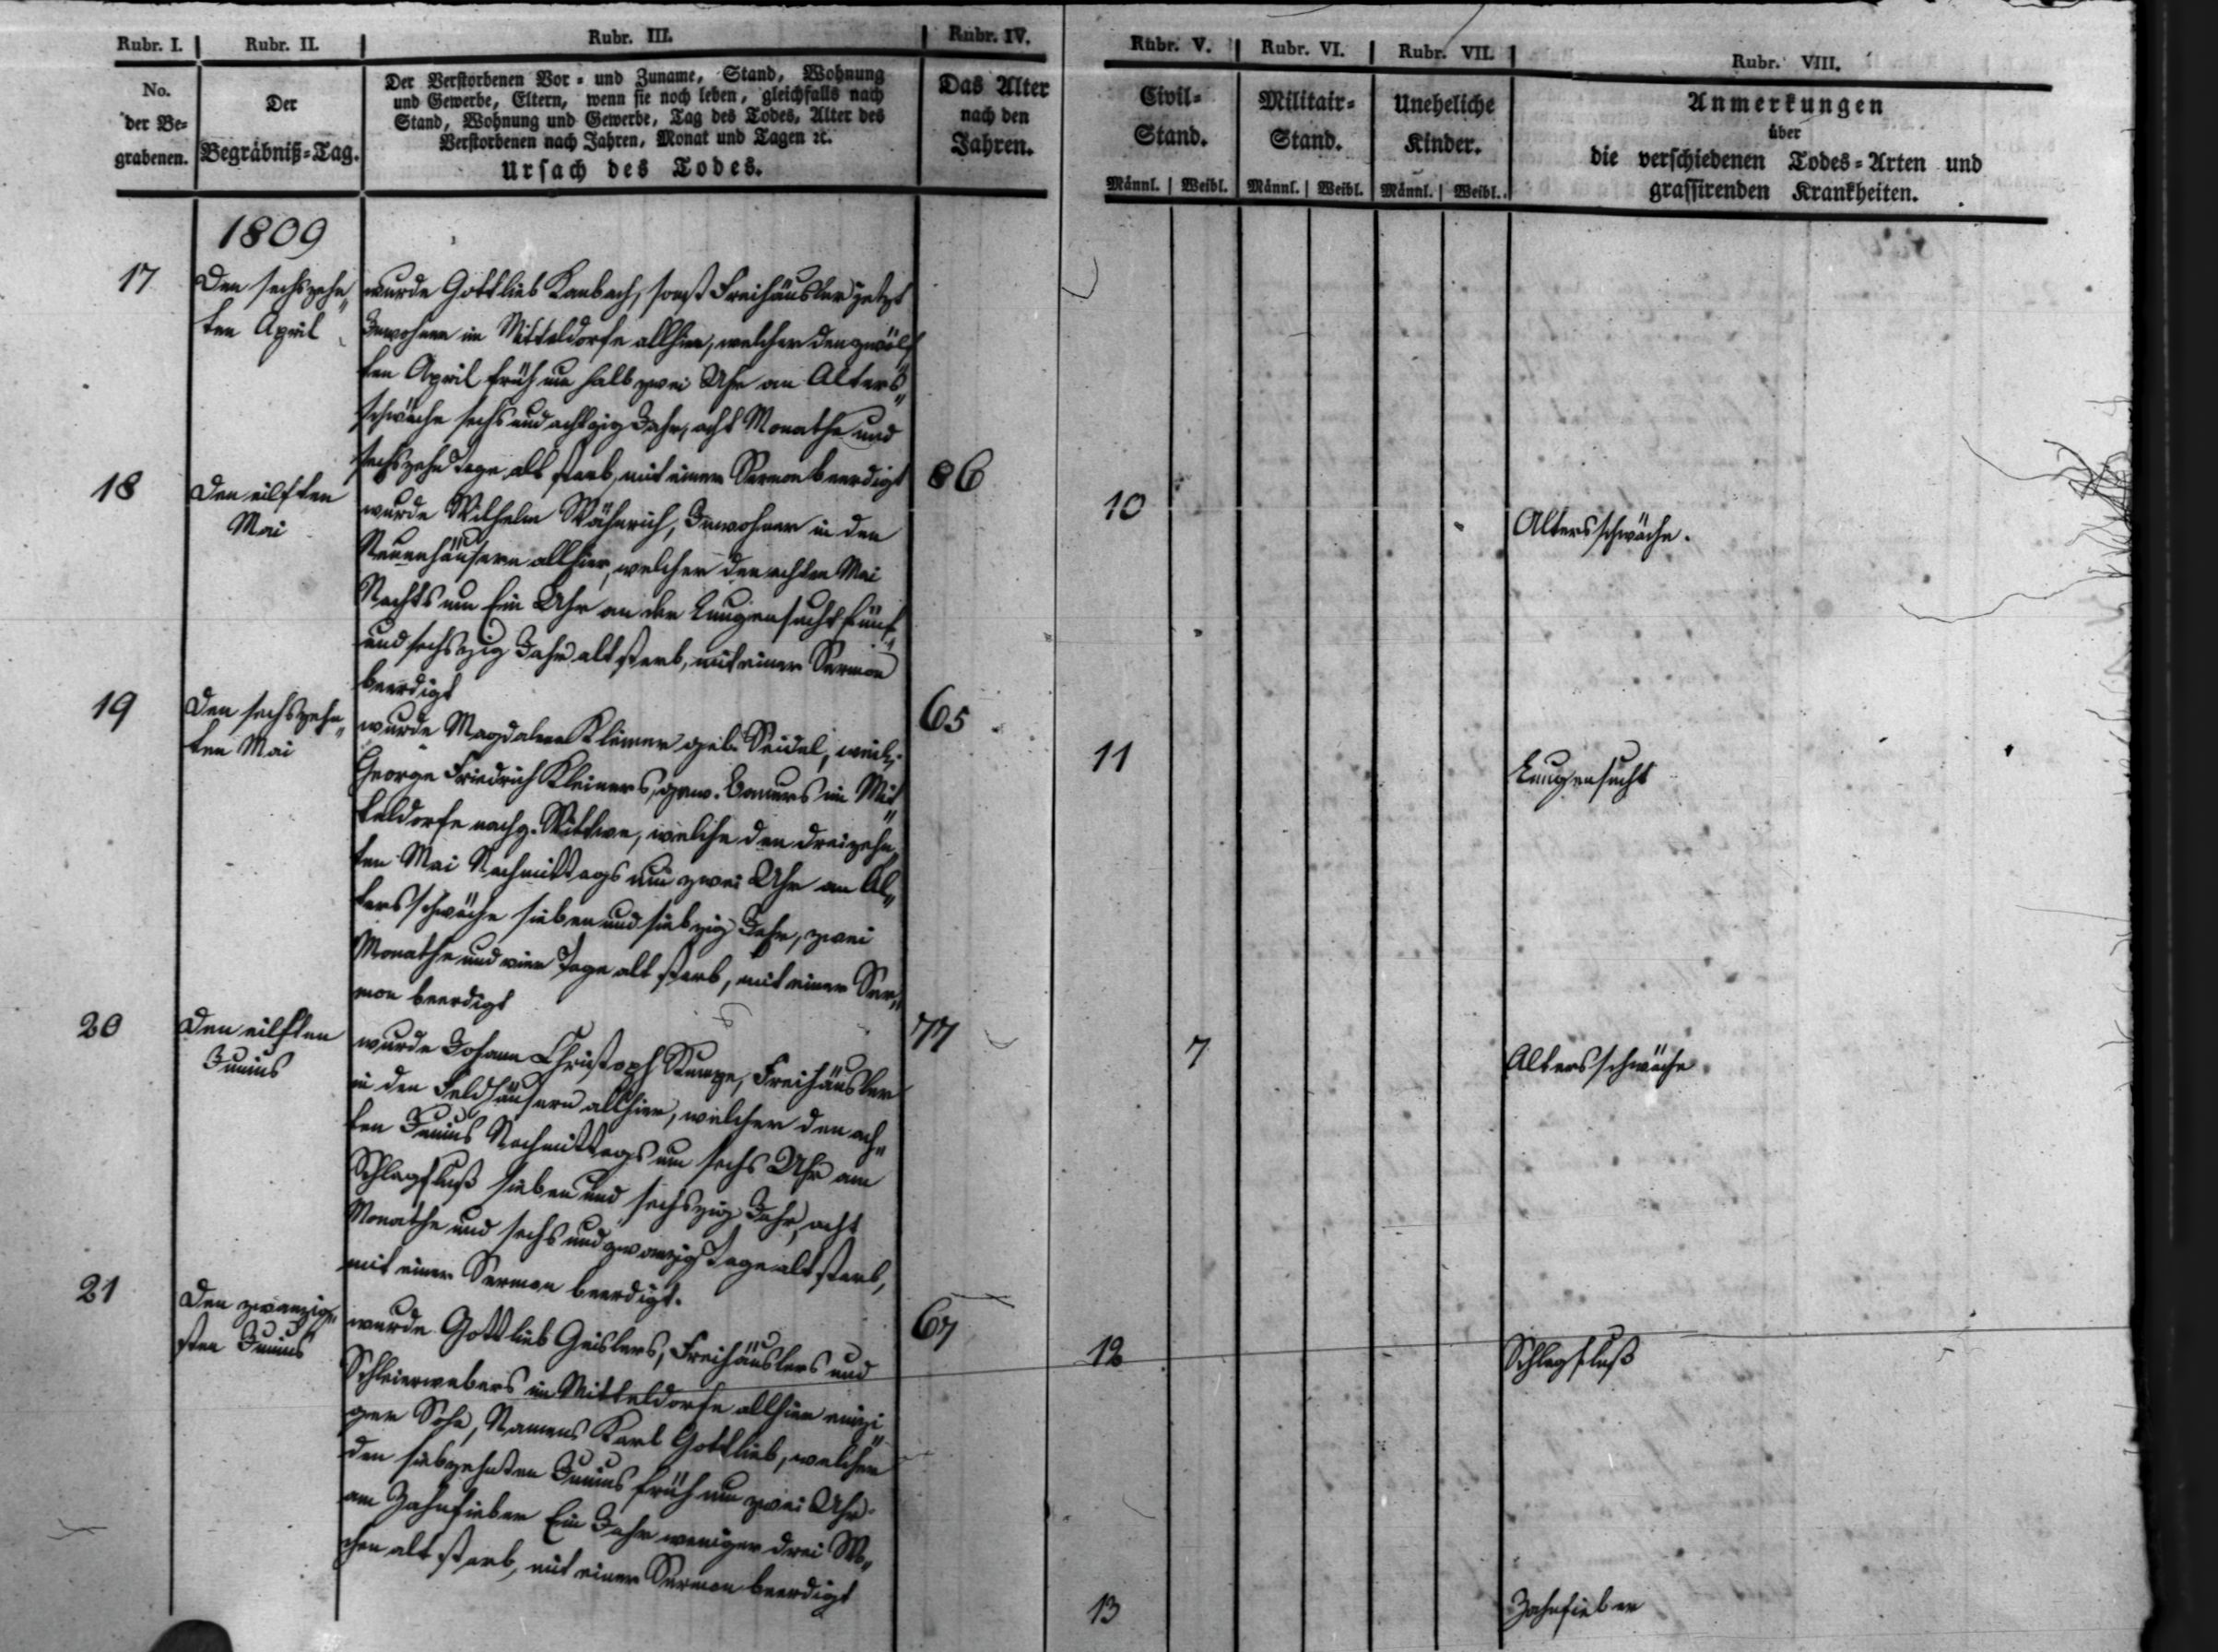 Rubr. I. Rubr. II. Rubr. III. Rubr. IV. Rubr. V. Rubr. VI. Rubr. VII. Rubr. VIII.
No.
der Be-
grabenen.
Der
Begräbniß-Tag.
Der Verstorbenen Vor- und Zuname, Stand, Wohnung
und Gewerbe, Eltern, wenn sie noch leben, gleichfalls nach
Stand, Wohnung und Gewerbe, Tag des Todes, Alter des
Verstorbenen nach Jahren, Monat und Tagen ꝛc.
Ursach des Todes.
Das Alter
nach den
Jahren.
Civil-
Stand.
Männl. Weibl.
Militair-
Stand.
Männl. Weibl.
Uneheliche
Kinder.
Männl. Weibl.
Anmerkungen
über
die verschiedenen Todes-Arten und
grassirenden Krankheiten.
1809
17
Den sechszehn„
ten April
wurde Gottlieb Kanbach, sonst Freihäusler jetzt
Inwohner im Mitteldorfe allhier, welcher den zwölf
ten April früh um halb zwei Uhr an Alters„
schwäche sechs und achtzig Jahr, acht Monathe und
sechszehn Tage alt starb, mit einem Sermon beerdigt
86
10
Altersschwäche.
18
Den eilften
Mai
wurde Wilhelm Wähnrich, Inwohner in den
Neuenhäusern allhier, welcher den achten Mai
Nachts um Ein Uhr an der Lungensucht fünf„
und sechszig Jahr alt starb, mit einem Sermon
beerdigt
65
11
Lungensucht
19
Den sechszehn„
ten Mai
wurde Magdalena Kleiner geb. Seidel, weil.
George Friedrich Kleiners, gew. Bauers im Mit„
teldorfe nachg. Wittwe, welche den dreizehn
ten Mai Nachmittags um zwei Uhr an Al„
tersschwäche sieben und siebzig Jahr, zwei
Monathe und vier Tage alt starb, mit einem Ser„
mon beerdigt
77
7
Altersschwäche
20
Den eilften
Junius
wurde Johann Christoph Rumpe, Freihäusler
in den Feldhäusern allhier, welcher den ach„
ten Junius Nachmittags um sechs Uhr am
Schlagfluß sieben und sechszig Jahr, acht
Monathe und sechs und zwanzig Tage alt starb,
mit einem Sermon beerdigt.
67
12
Schlagfluß
21
Den zwanzig„
sten Junius
wurde Gottlieb Geislers, Freihäuslers und
Schleierwebers im Mitteldorfe allhier einzi„
ger Sohn, Namens Karl Gottlieb, welcher
den siebzehnten Junius früh um zwei Uhr
am Zahnfieber Ein Jahr weniger drei Wo„
chen alt starb, mit einem Sermon beerdigt
13
Zahnfieber